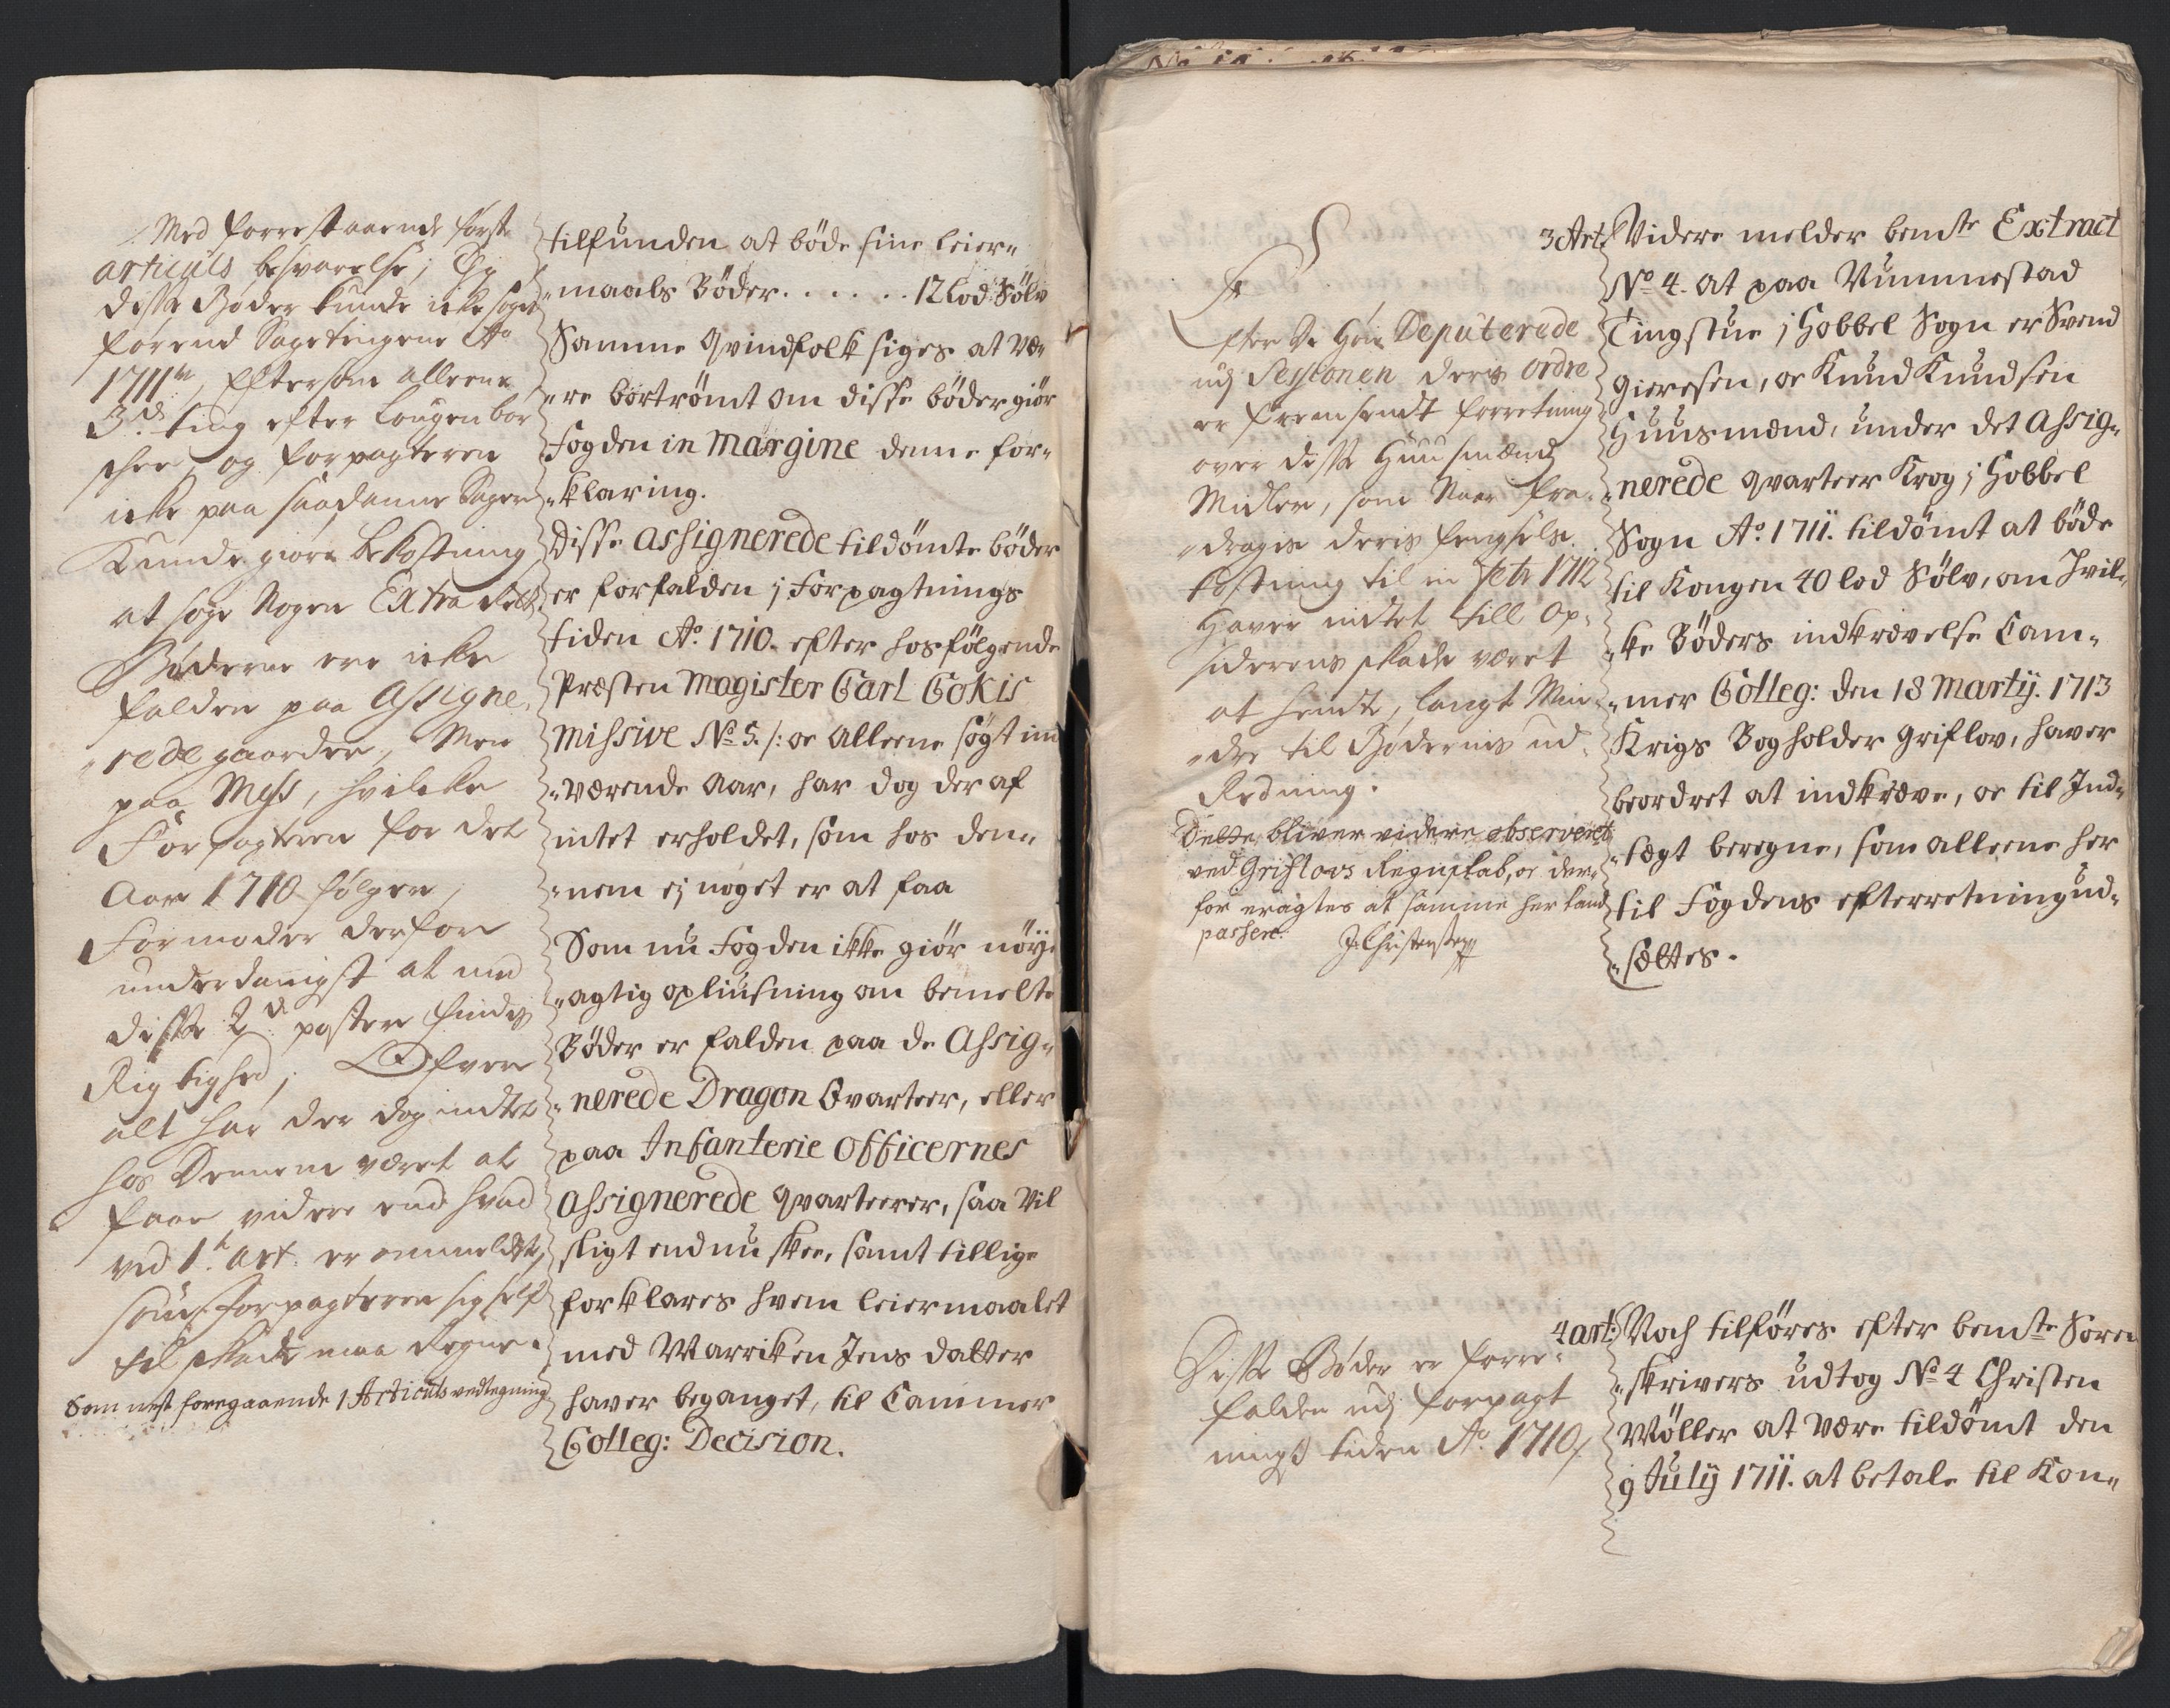 Med forrestaaende først
articuls besvarelse; Og
disse Bøder kunde icke søges
førend Sagetingene Ao
1711, Eftersom alleene
3de ting efter Lougen bør
skee, og forpagteren
icke paa saadanne Sager
Kunde giøre bekostning
at søge Nogen Extra Rett,
Bøderne ere icke
falden paa Assigne-
rede gaarder, Men
paa Moss, hvilcke
Forpagteren for det
Aar 1710 følger,
Formoder derfore
underdanigst at med
disse 2de poster findes
Rigtighed; Ofver
alt har der dog indtet
hos Dennem været at
faae videre end hvad
ved 1te Art: er ommeldte,
som Forpagteren sig self
til skade maa Regne.
Som nest foregaaende 1 Articuls vedtegning
tilfunden at böde sine leier-
maals Böder ...... 12 lod Sölv
Samme qvindfolk siges at væ-
re bortrömt om disse böder giör
Fogden in Margine denne for-
klaring.
Disse assignerede tildömte böder
er forfalden i Forpagtnings
tiden Ao. 1710. efter hosfölgende
Præsten Magister Carl Gokis
Missive No. 5. /: oc alleene sögt ind
værende aar, har dog der af
intet erholdet, som hos den-
nem ej noget er at faa
Som nu Fogden ikke giör nöy-
agtig opliusning om bemelte
Böder er falden paa de Assig-
nerede Dragon Qvarteer, eller
paa Infanterie Officernes
Assignerede qvarteerer, saa vil
sligt endnu skee, samt tillige
forklares hvem leiermaalet
med Marriken Jens datter
haver begaaet, til Cammer
Colleg: Decision.
Efter De Høie Deputerede
udj Seystonen deris Ordre
er fremsendt forretning
over disse Huusmænds
Midler, som Naar fra-
dragis deris fengsels
kostning til in 1712
Haver indtet till Op-
siderens skade været
at hendte, langt Min-
dre til Bødernis ud
Redning.
Dette bliver videre observeret
ved Griflovs Regnskab, oc der-
for eragtes at samme her kand
passere. J: Christensen
3 Art: Videre melder bemte Extract
No. 4. at paa Vummestad
Tingstue i Hobbel Sogn er Svend
Gieresen, oc Knud Knudsen
Huusmænd, under det Assig-
nerede qvarteer Krog i Hobbel
Sogn Ao. 1711. tildömt at böde
til Kongen 40 lod Sölv, om Hvil-
ke Böders indkrævelse Cam-
mer Colleg: den 18 Martij. 1713
Krigs Bogholder Griflov, haver
beordret at indkræve, oc til Ind-
tægt beregne, som alleene her
til Fogdens efterretning ud-
sættes.
Disse Bøder er forre-
falden udj forpagt
nings tiden Ao. 1710/
4 art: Noch tilföres efter bemte Soren
skrivers udtog No. 4 Christen
Möller at være tildömt den
9 July 1711. at betale til Kon-